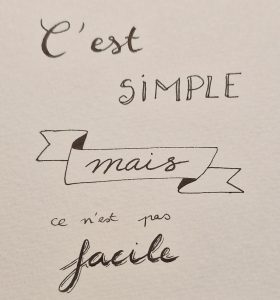 C'est
SiMPLE
mais
ce n'est pas
facile